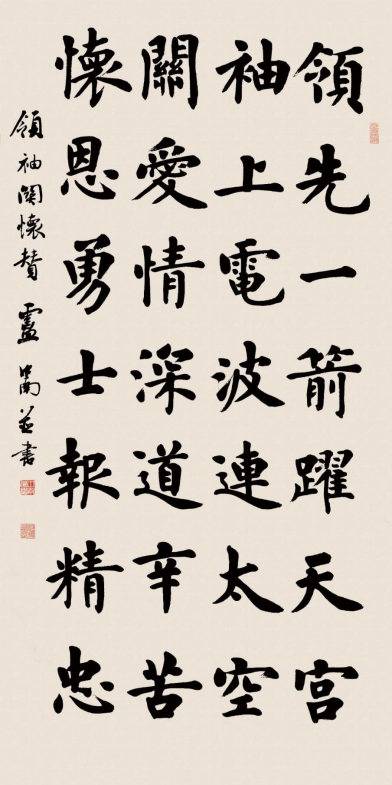 領先一箭躍天宮
袖上電波連太空
關愛情深道辛苦
懷恩勇士報精忠
領袖関懷賛 盧中南並書